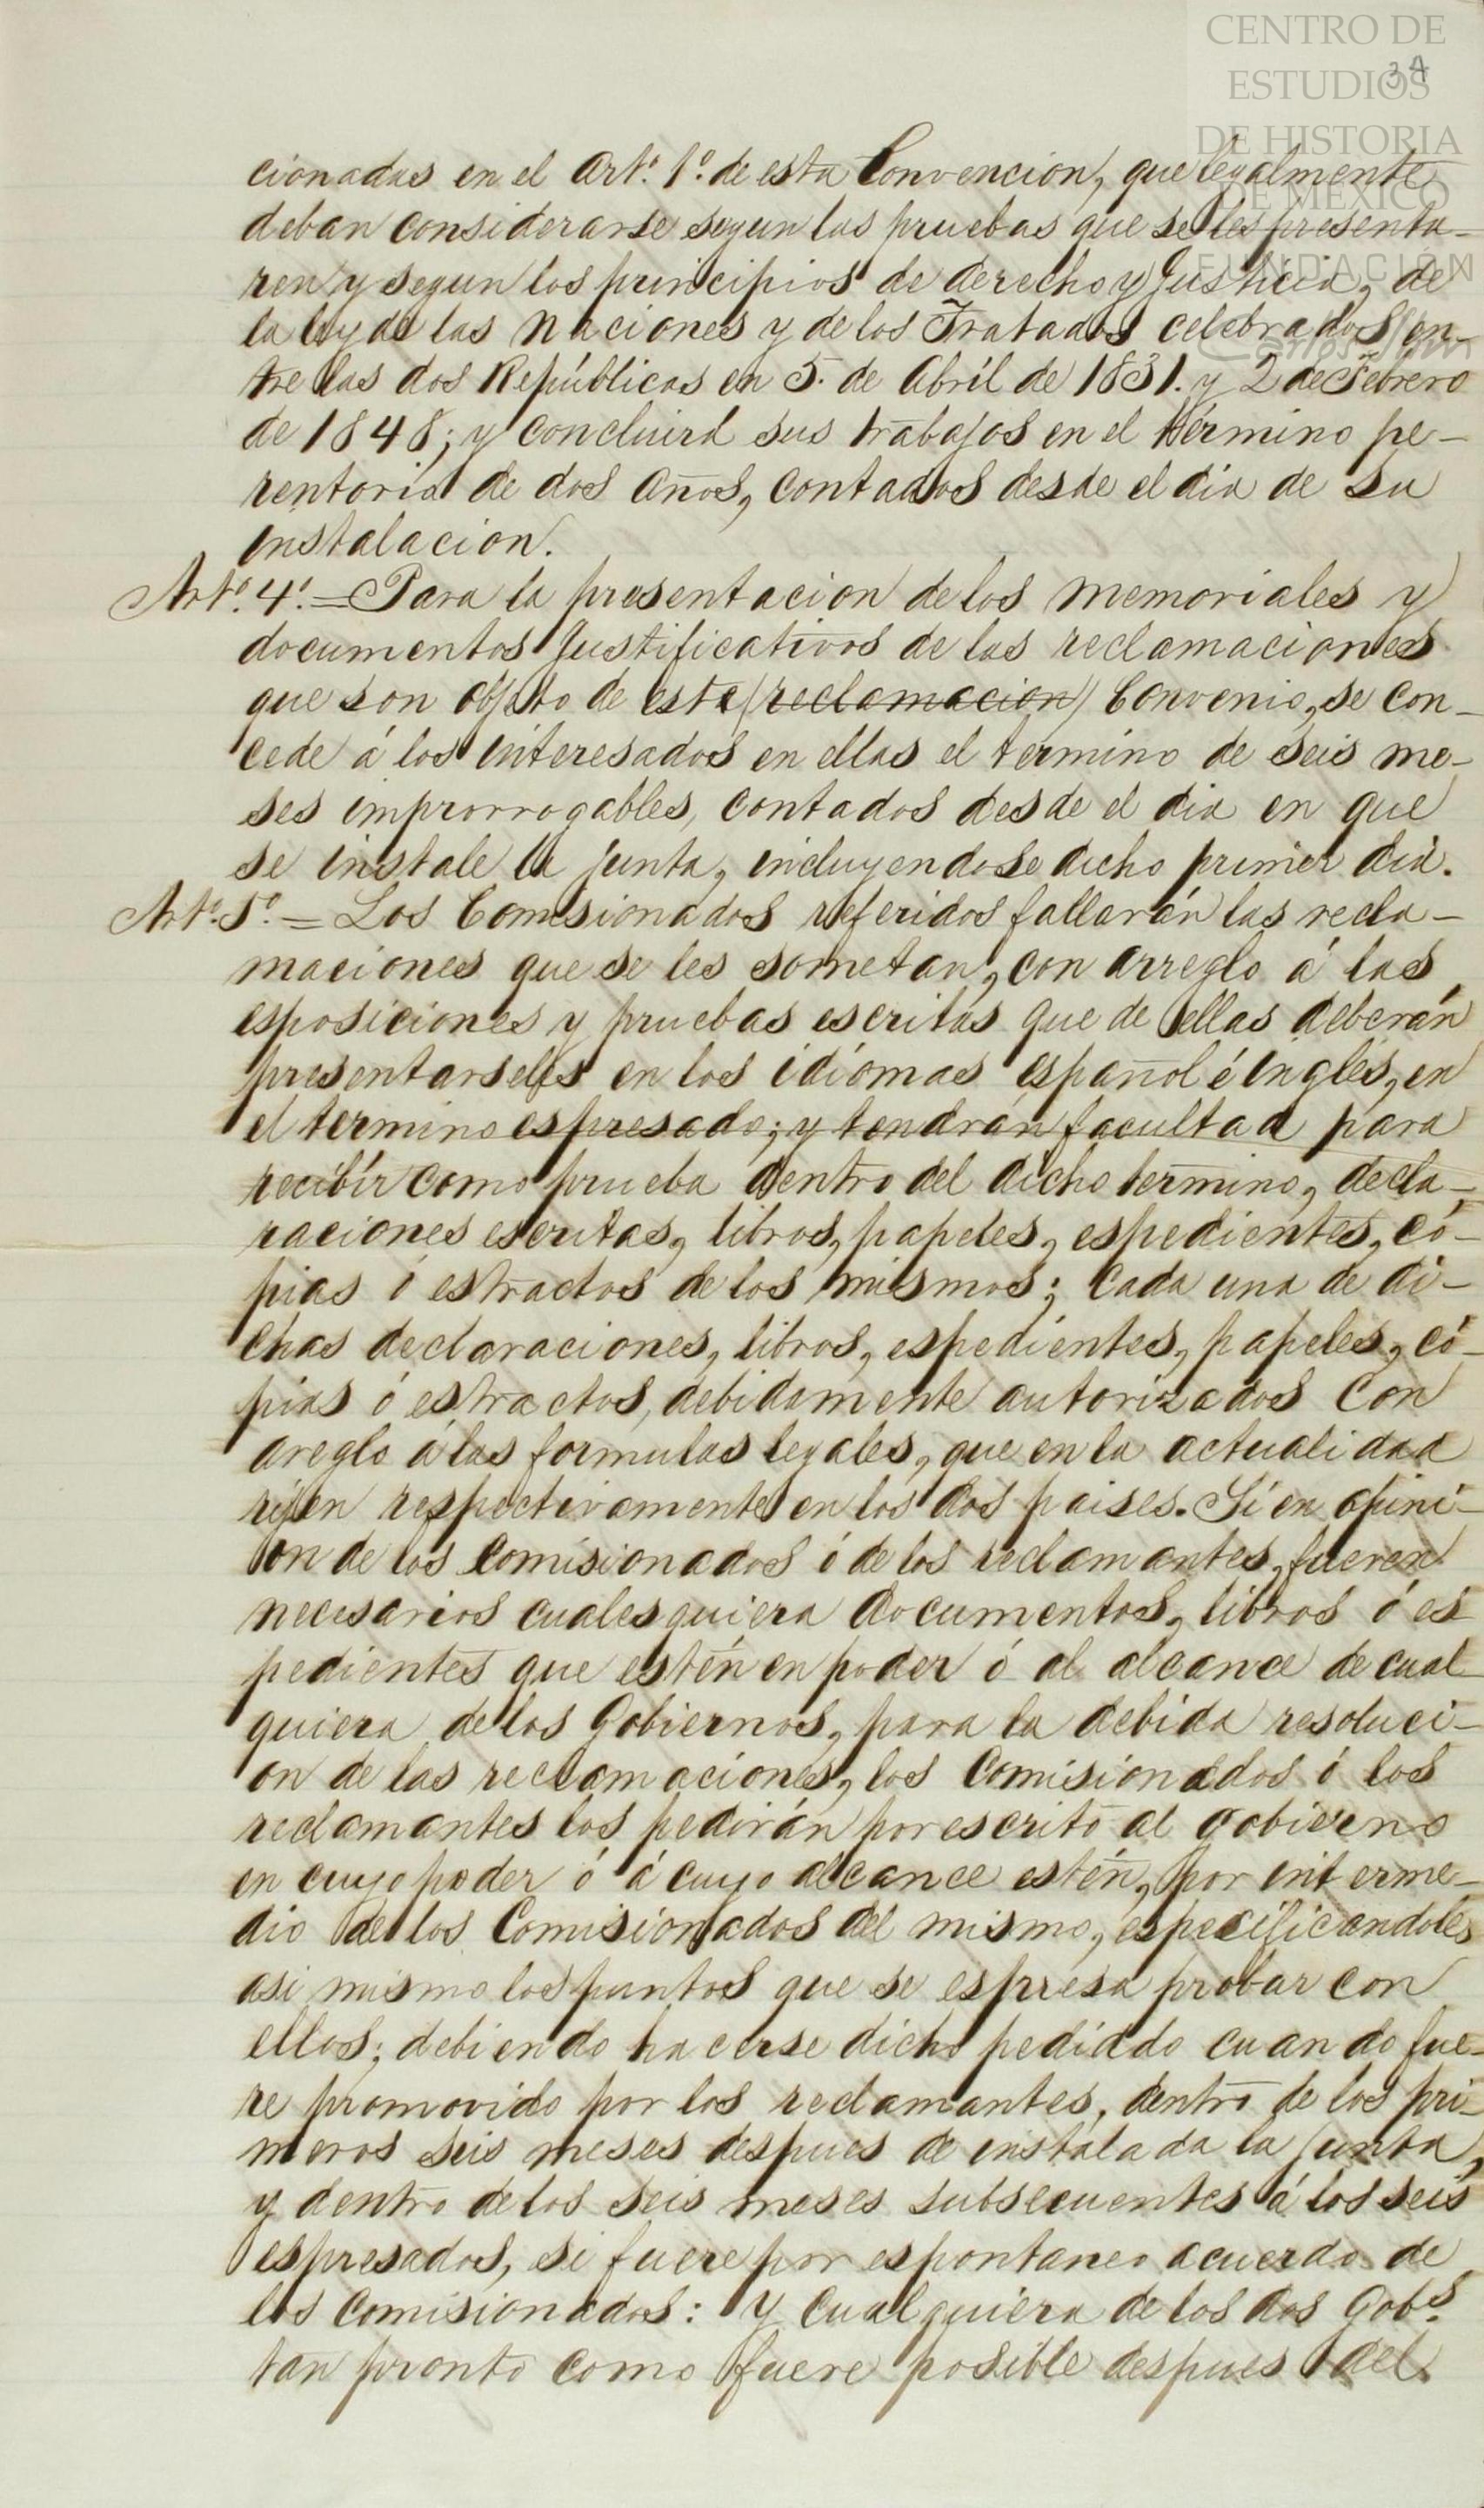 CENTRO DE
ESTUDIOS
DE HISTORIA
DE MEXICO
FUNDACIÓN
34
cionadas en el Artº. 1º. de esta Convencion, que legalmente
deban considerarse segun las pruebas que se les presenta-
ren y segun los principios de derecho y Justicia, de
la ley de las Naciones y de los Tratados celebrados en-
tre las dos Repúblicas en 5. de Abril de 1831. y 2 de Febrero
de 1848; y concluirá sus trabajos en el término pe-
rentorio de dos años, contados desde el dia de su
instalacion.
Artº. 4º. = Para la presentacion de los memoriales y
documentos Justificativos de las reclamaciones
que son objeto de este (reclamacion) Convenio, se con-
cede á los interesados en ellas el termino de seis me-
ses improrrogables, contados desde el dia en que
se instale la junta, incluyendose dicho primer dia.
Artº. 5º. = Los Comisionados referidos fallarán las recla-
maciones que se les sometan, con arreglo á las
esposiciones y pruebas escritas que de ellas deberán
presentarseles en los idiomas español é ingles, en
el termino espresado; y tendrán facultad para
recibír como prueba dentro del dicho termino, decla-
raciones escritas, libros, papeles, espedientes, có-
pias ó estractos de los mismos; cada una de di-
chas declaraciones, libros, espedientes, papeles, có-
pias ó estractos, debidamente autorizados con
areglo á las formulas legales, que en la actualidad
rijen respectivamente en los dos paises. Sí en opini-
on de los comisionados ó de los reclamantes, fueren
necesarios cualesquiera documentos, libros ó es
pedientes que estén en poder ó al alcance de cual
quiera de los Gobiernos, para la debida resoluci-
on de las reclamaciones, los Comisionados ó los
reclamantes los pedirán por escrito al gobierno
en cuyo poder ó á cuyo alcance estén, por interme-
dio de los Comisionados del mismo, especificandoles
asi mismo los puntos que se espresa probar con
ellos; debiendo hacerse dicho pediddo cuando fue-
re promovido por los reclamantes, dentro de los pri-
meros seis meses despues de instalada la junta,
y dentro de los seis meses subsecuentes á los seis
espresados, si fuere por espontaneo acuerdo de
los comisionados: y cualquiera de los dos Gobs.
tan pronto como fuere posible despues del